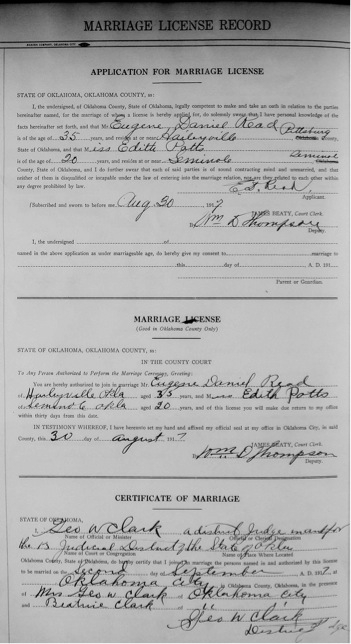 MARRIAGE LICENSE RECORD
APPLICATION FOR MARRIAGE LICENSE
STATE OF OKLAHOMA, OKLAHOMA COUNTY, ss:
I, the undersigned, of Oklahoma County, State of Oklahoma, legally competent to make and take an oath in relation to the parties
hereinafter named, for the marriage of whom a license is hereby applied for, do solemnly swear that I have personal knowledge of the
facts hereinafter set forth, and that Mr. Eugene Daniel Read Pittsburg
is of the age of 35 years, and resides at or near Haileyville County,
State of Oklahoma, and that Miss Edith Potts
is of the age of 20 years, and resides at or near Seminole
County, State of Oklahoma, and I do further swear that each of said parties is of sound contracting mind and unmarried, and that
neither of them is disqualified or incapable under the law of entering into the marriage relation, nor are they related to each other within
any degree prohibited by law. E. D. Read,
Applicant.
(Subscribed and sworn to before me Aug 30 1917
JAMES BEATY, Court Clerk.
By Wm D Thompson
Deputy.
I, the undersigned of
named in the above application as under marriageable age, do hereby give my consent to marriage to
this day of A. D. 191
Parent or Guardian.
MARRIAGE LICENSE
(Good in Oklahoma County Only)
STATE OF OKLAHOMA, OKLAHOMA COUNTY, ss:
IN THE COUNTY COURT
To Any Person Authorized to Perform the Marriage Ceremony, Greeting:
You are hereby authorized to join in marriage Mr. Eugene Daniel Read
of Haileyville Okla aged 35 years, and Miss Edith Potts
of Seminole Okla aged 20 years, and of this license you will make due return to my office
within thirty days from this date.
IN TESTIMONY WHEREOF, I have hereunto set my hand and affixed my official seal at my office in Oklahoma City, in said
County, this 30 day of August 191 7
JAMES BEATY, Court Clerk.
By Wm D Thompson
Deputy.
CERTIFICATE OF MARRIAGE
STATE OF OKLAHOMA,
I, Geo W Clark a district Judge in and for
Name of Official or Minister Official or Clerical Designation
the 13 Judicial District of the State of Okla
Name of Court or Congregation Name of Place Where Located
Oklahoma County, State of Oklahoma, do hereby certify that I joined in marriage the persons named in and authorized by this license
to be married on the Second day of September A. D. 191 7
Oklahoma City in Oklahoma County, Oklahoma, in the presence
of Mrs Geo W Clark of Oklahoma City
and Beatrice Clark of "
Geo W Clark
District Judge